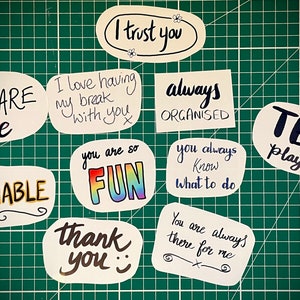 I trust you
ARE
I love having
my break
with you x
always
ORGANISED
you are so
FUN
you always
Know
what to do
ABLE
thank
you
You are always
there for me
x